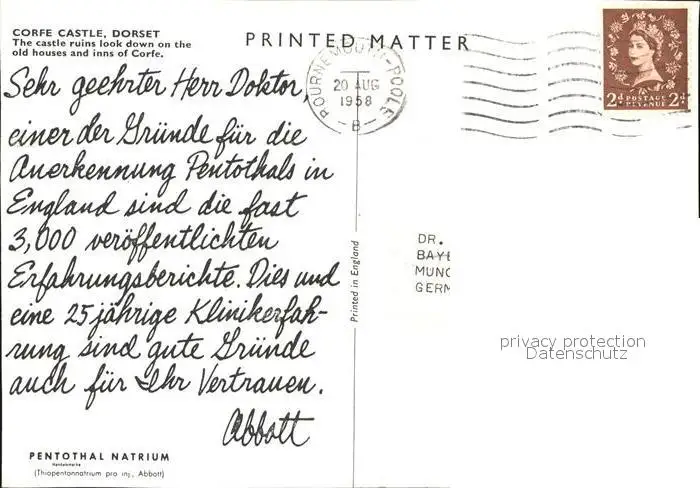 CORFE CASTLE, DORSET
The castle ruins look down on the
old houses and inns of Corfe.
PRINTED MATTER
Sehr geehrter Herr Doktor,
einer der Gründe für die
Anerkennung Pentothals in
England sind die fast
3,000 veröffentlichten
Erfahrungsberichte. Dies und
eine 25 jährige Klinikerfah-
rung sind gute Gründe
auch für Ihr Vertrauen.
Abbott
PENTOTHAL NATRIUM
Handelsmarke
(Thiopentonnatrium pro inj., Abbott)
Printed in England
BOURNEMOUTH-POOLE
20 AUG
1958
- B -
2d POSTAGE 2d
REVENUE
DR.
BAYE
MUNC
GERM
privacy protection
Datenschutz